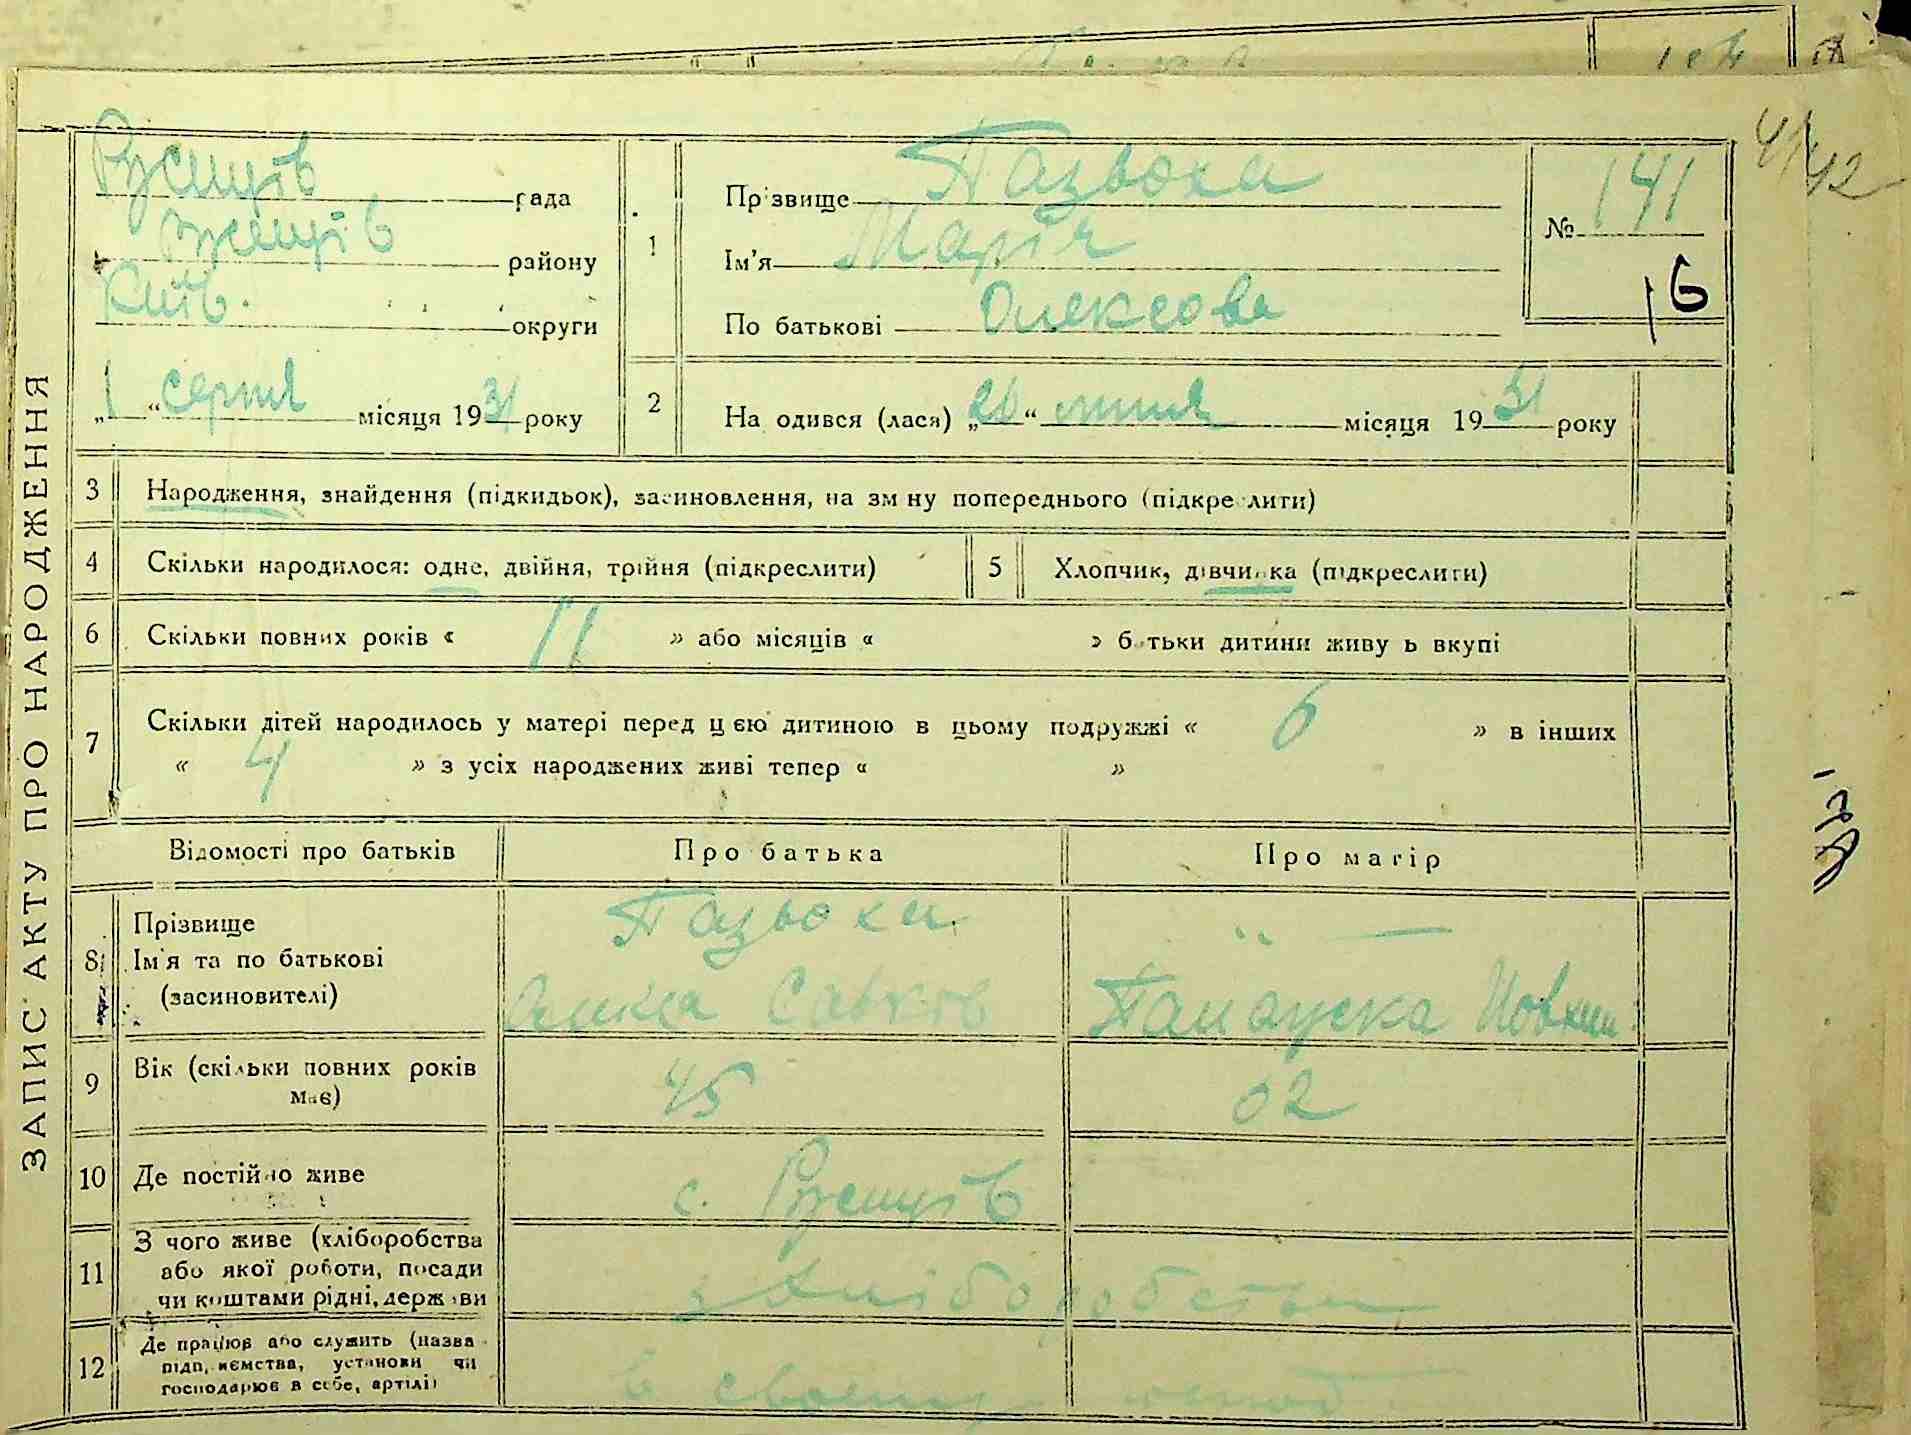 ЗАПИС АКТУ ПРО НАРОДЖЕННЯ
рада
району
Київ. округи
„1“ серпня місяця 1931 року
1
Прізвище
Ім'я Марія
По батькові Олексова
№ 141
16
41/42
2
На одився (лася) „26“ липня місяця 1931 року
3 Народження, знайдення (підкидьок), засиновлення, на зм ну попереднього (підкре лити)
4 Скільки народилося: одне, двійня, трійня (підкреслити)
5 Хлопчик, дівчинка (підкреслити)
6 Скільки повних років « 11 » або місяців « » б тьки дитини живу ь вкупі
7 Скільки дітей народилось у матері перед ц єю дитиною в цьому подружжі « 6 » в інших
« 4 » з усіх народжених живі тепер « »
Відомості про батьків
Про батька
Про матір
8 Прізвище
Ім'я та по батькові
(засиновителі)
9 Вік (скільки повних років має)
45
10 Де постійно живе
с.
11 З чого живе (хліборобства
або якої роботи, посади
чи коштами рідні, держ ви
з хліборобства
12 Де працює або служить (назва
підп иємства, установи чи
господарює в себе, артілі)
в своему